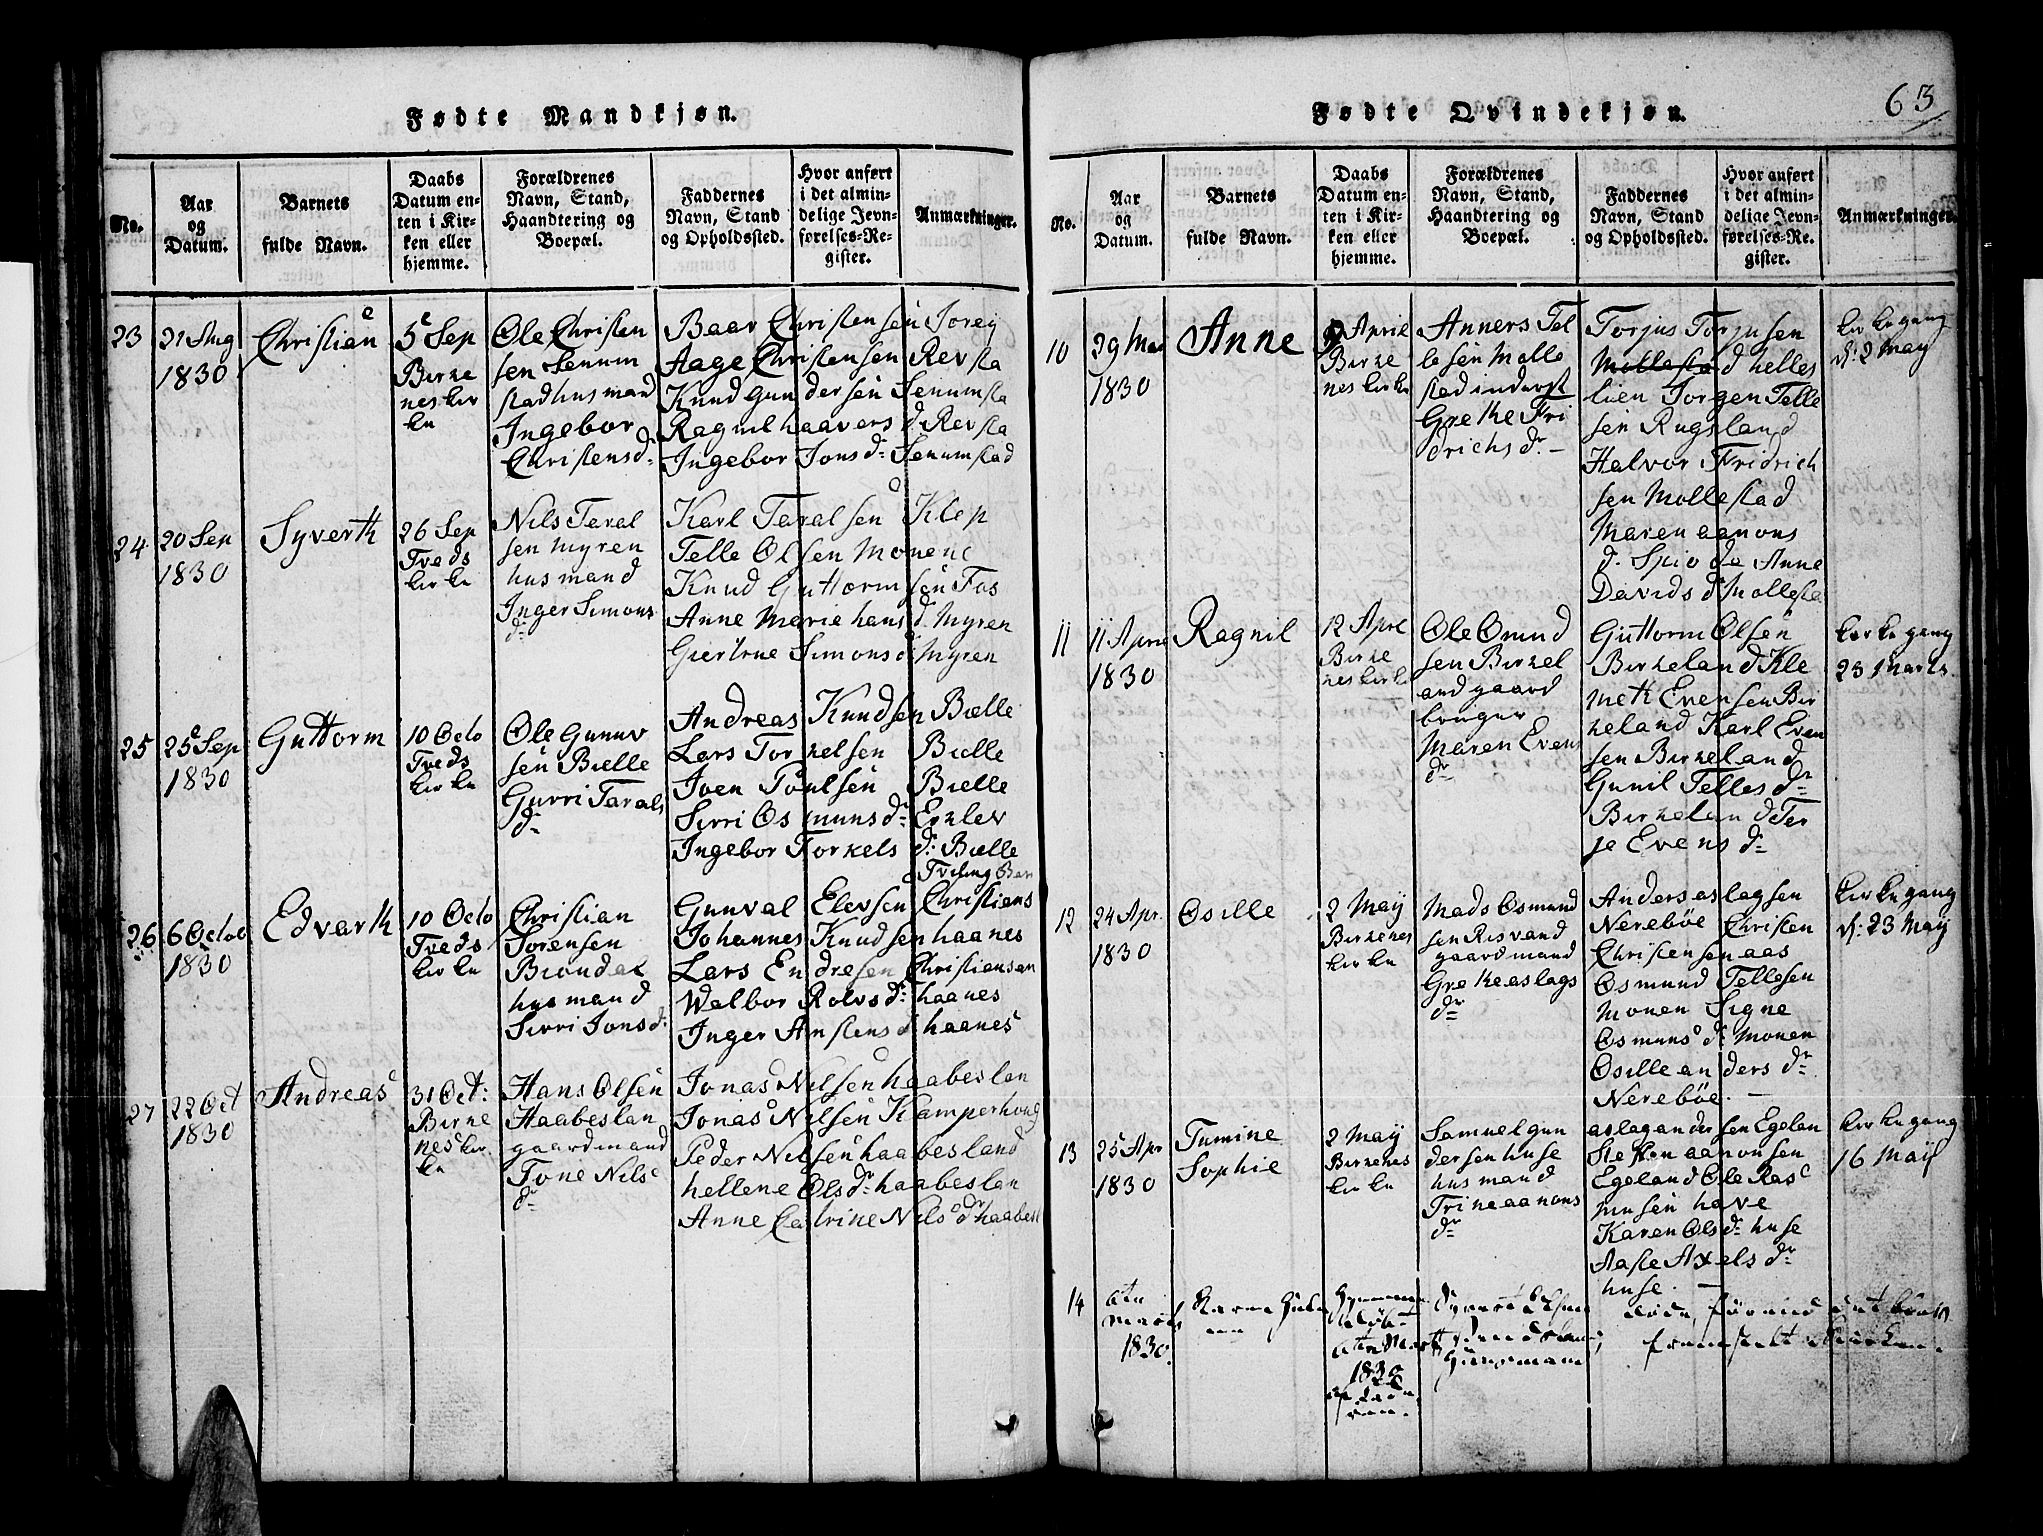 Fødte Mandkjøn.
No.
Aar
og
Datum.
Barnets
fulde Navn.
Daabs
Datum en-
ten i Kir-
ken eller
hjemme.
Forældrenes
Navn, Stand,
Haandtering og
Boepæl.
Faddernes
Navn, Stand
og Opholdssted.
Hvor anført
i det almin-
delige Jevn-
førelses-Re-
gister.
Anmærkninger.
23
21 Aug
1830
Christian
5 Sep
Birke
nes kir
ke
Ole Christen
sen Senum
stad husmand
Ingebor
Christensd.
Baar Christensen
Aage Christensen Revsta
Knud Gundersen Senumsta
Ragnil haavers d. Revsta
Ingebor Jons d. Senumstad
24
20 Sep
1830
Syverth
26 Sep
Tveds
kirke
Nils Taral
sen Myren
husmand
Inger Simons
d.
Karl Taralsen Klep
Telle Olsen Monene
Knud Guttormsen Fos
Anne Marie hans d. Myren
Giertrue Simons d. Myren
25
25 Sep
1830
Guttorm
10 Octo
Tveds
kirke
Ole Gunuv
sen Bielle
Gurri Tarals
d.
Andreas Knudsen Bielle
Lars Torkelsen Bielle
Joen Poulsen Bielle
Sirri Osmuns dr. Eiklev
Ingebor Torkels d. Bielle
26
6 Octob
1830
Edvarth
10 Octo
Tveds
kirke
Christian
Sørensen
Biøndal
husmand
Sirri Jonsd.
Gunval Elevsen Christians
Johannes Knudsen haanes
Lars Endresen Christiansan
Walbor Rolvs d. haanes
Inger Anstens d. haanes
27
22 Oct
1830
Andreas
31 Oct.
Birke
nes kir
ke
Hans Olsen
Haabeslan
gaardmand
Tone Nils
dr
Jonas Nilsen haabeslan
Jonas Nilsen Kamperhoug
Peder Nilsen haabesland
hellene Ols dr. haabeslan
Anne Catrine Nils dr. haabesl
63
Fødte Qvindekjøn.
No.
Aar
og
Datum.
Barnets
fulde Navn.
Daabs
Datum en-
ten i Kir-
ken eller
hjemme.
Forældrenes
Navn, Stand,
Haandtering og
Boepæl.
Faddernes
Navn, Stand
og Opholdssted.
Hvor anført
i det almin-
delige Jevn-
førelses-Re-
gister.
Anmærkninger.
10
29 Mar
1830
Anne
Aprie
Birke
nes kirke
Anners Tel
lesen Molle
stad inderst
Grethe Fri
drichs dr.
Torjus Torjusen
Mollestad helles
lien Jorgen Telle
sen Rugsland
Halvor Fridrich
sen Mollestad
Maren aanons
d. Anne
Davids d Mollesta
kirkegang
d: 2 May
11
11 Aprie
1830
Ragnil
12 Apre
Birke
nes kirke
Ole Omund
sen Birkel
and gaard
bruger
Maren Evens
dr
Guttorm Olsen
Birkeland Kle
meth Evensen Bir
keland Karl Even
sen Birkeland
Gunil Telles dr.
Birkeland Ter
je Evens d.
kirkegang
23 Marts
12
24 Apr.
1830
Osille
2 May
Birkenes
kirke
Mads Osmund
sen Risvand
gaardmand
Grethe aslags
dr
Anders aslagsen
Nerebøe Christen
Christensen aas
Osmund Tellesen
Monen Signe
Osmuns d. Monen
Osille anders dr.
Nerebøe.
kirkegang
d: 23 May
13
25 Apr
1830
Tumine
Sophie
2 May
Birkenes
kirke
Samuel gun
dersen huse
husmand
Trine aanons
dr
aslag andersen Egelan
Steften aanonsen
Egeland Ole Ras
musen have
Karen Ols dr. huse
Aaste Axels dr.
huse.
kirkegang
16 May
14
1830.
1830